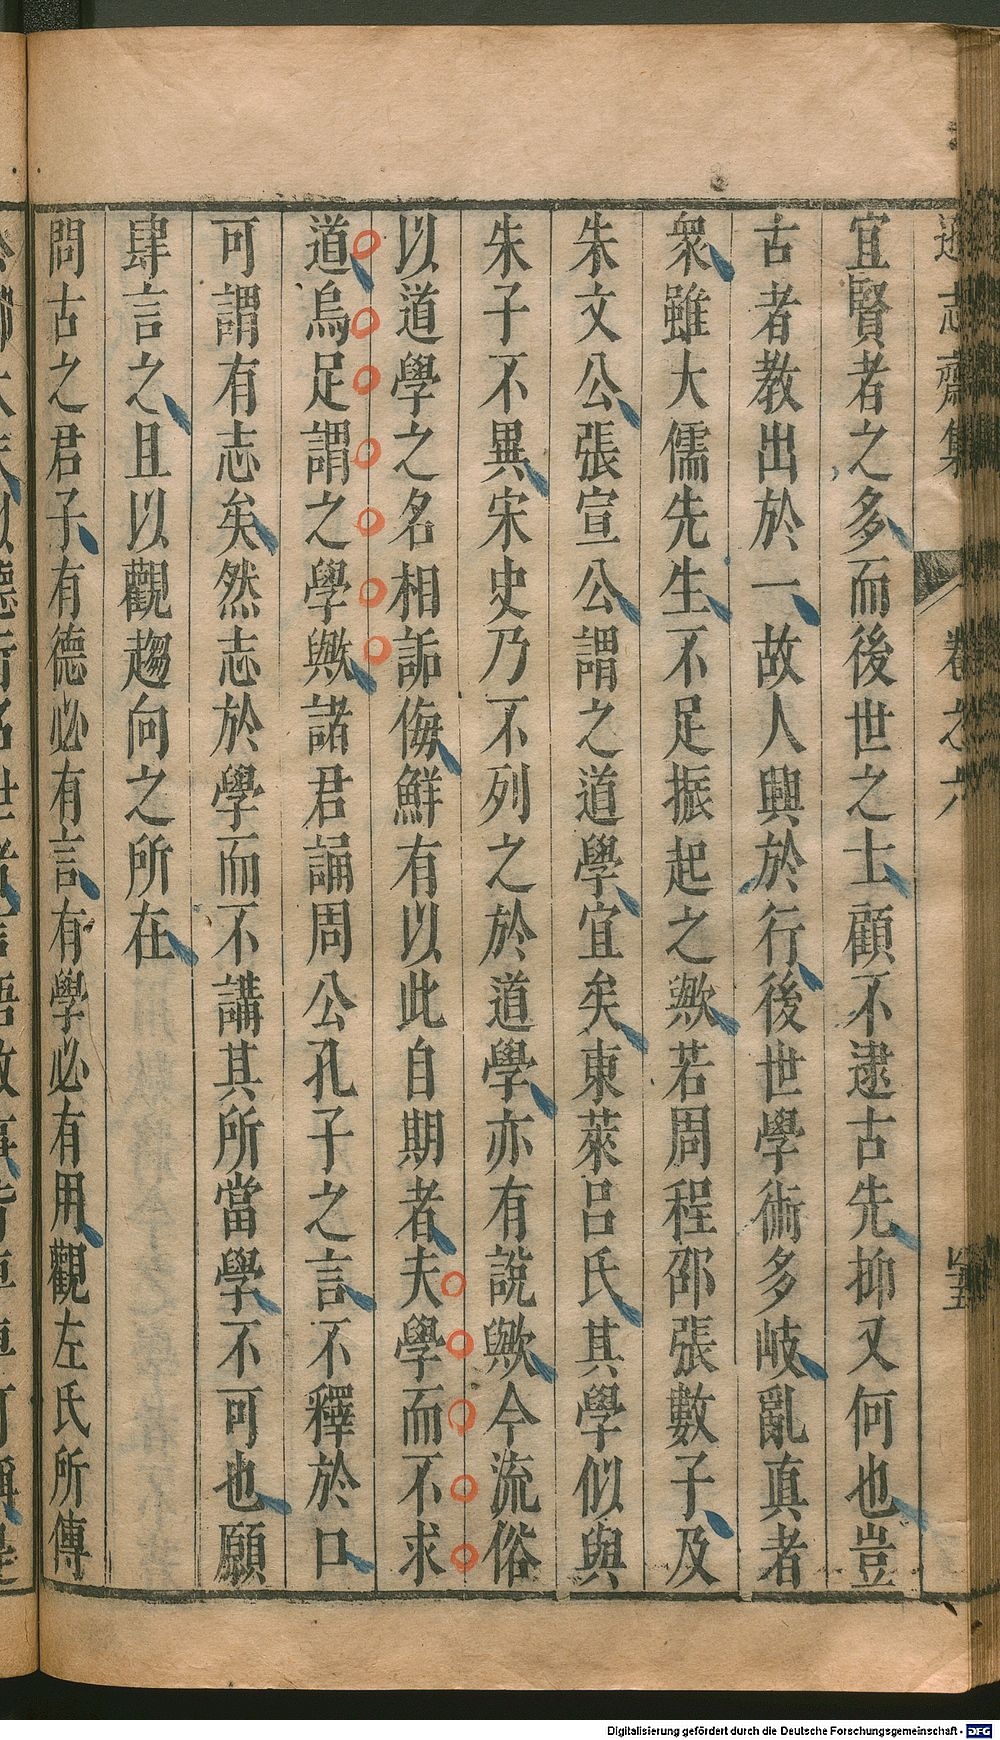 遜志齋集
卷之六
宜賢者之多而後世之士顧不逮古先抑又何也豈
古者教出於一故人興於行後世學術多岐亂真者
衆雖大儒先生不足振起之歟若周程邵張數子及
朱文公張宣公謂之道學宜矣東萊呂氏其學似與
朱子不異宋史乃不列之於道學亦有說歟今流俗
以道學之名相詬侮鮮有以此自期者夫學而不求
道烏足謂之學歟諸君誦周公孔子之言不釋於口
可謂有志矣然志於學而不講其所當學不可也願
肆言之且以觀趨向之所在
問古之君子有德必有言有學必有用觀左氏所傳
Digitalisierung gefördert durch die Deutsche Forschungsgemeinschaft - DFG